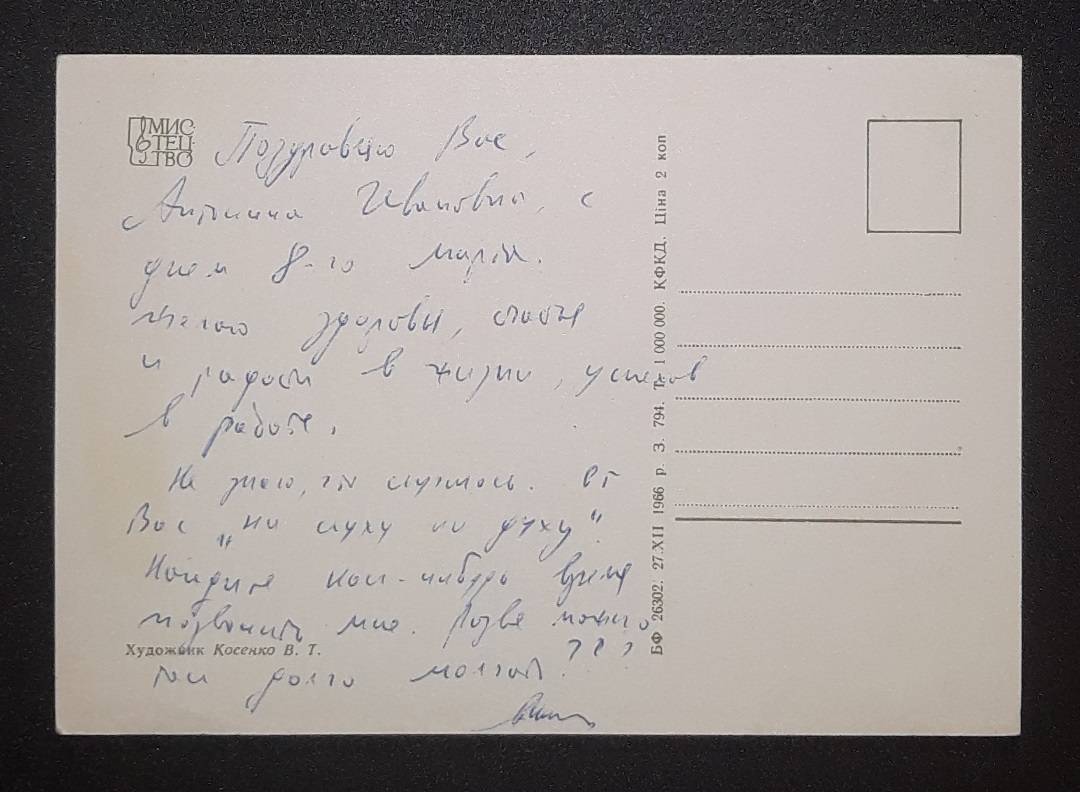 МИС
ТЕЦ
ТВО
Поздравляю Вас,
Антонина Ивановна, с
днем 8-го марта.
Желаю здоровья, счастья
и радости в жизни, успехов
в работе.
Не знаю, что случилось. От
Вас „ни слуху ни духу“.
Найдите как-нибудь время
позвонить мне. Разве можно
Художник Косенко В. Т.
так долго молчать???
БФ 26302. 27.XII 1966 р. З. 794. Т. 1 000 000. КФКД. Ціна 2 коп